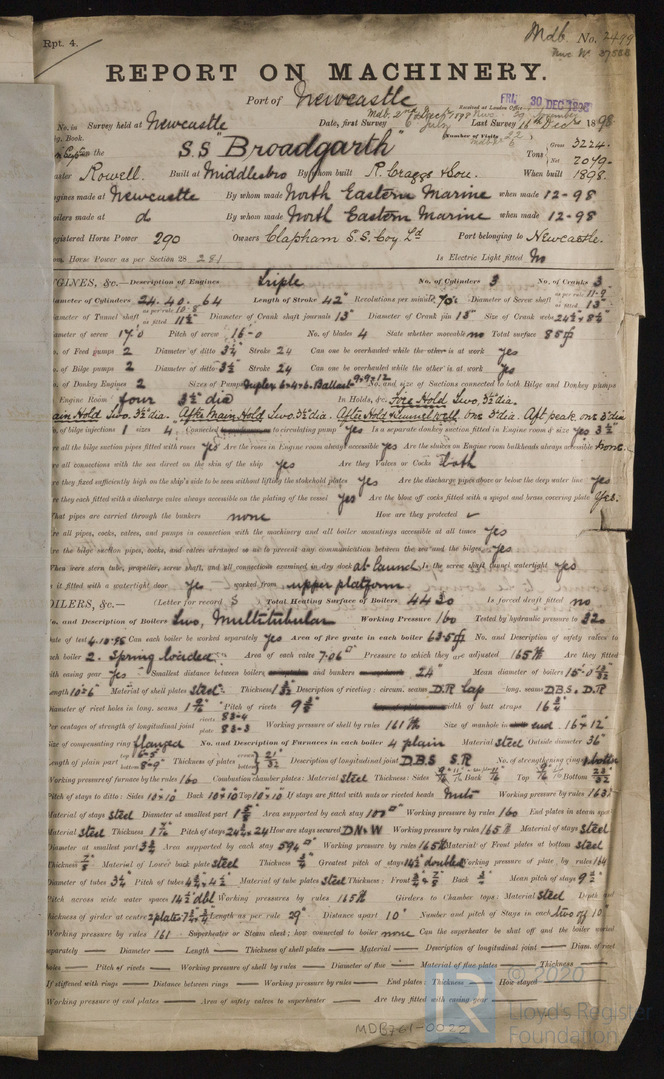 Rpt. 4.
Mdb. No. 2499
Nwc No 37588
REPORT ON MACHINERY.
Port of Newcastle
FRI. 30 DEC 1898
Received at London Office
No. in Survey held at Newcastle Date, first Survey Last Survey 16th Decr 1898
Book. (Number of Visits
on the S.S. "Broadgarth" Tons Gross 3224. Net 2079.
Rowell. Built at Middlesbro By whom built R. Craggs & Sons. When built 1898.
Engines made at Newcastle By whom made North Eastern Marine when made 12-98
Boilers made at do By whom made North Eastern Marine when made 12-98
Registered Horse Power 290 Owners Clapham S.S. Coy Ltd Port belonging to Newcastle.
Horse Power as per Section 28 281 Is Electric Light fitted No
ENGINES, &c.— Description of Engines Triple No. of Cylinders 3 No. of Cranks 3
Diameter of Cylinders 24-40-64 Length of Stroke 42" Revolutions per minute 70 Diameter of Screw shaft as per rule 11-9 as fitted 13"
Diameter of Tunnel shaft as per rule 10-8 as fitted 11½" Diameter of Crank shaft journals 13" Diameter of Crank pin 13" Size of Crank webs 24½ x 8½"
Diameter of screw 17.0 Pitch of screw 16-0 No. of blades 4 State whether moveable no Total surface 85
No. of Feed pumps 2 Diameter of ditto 3¼ Stroke 24 Can one be overhauled while the other is at work yes
No. of Bilge pumps 2 Diameter of ditto 3½" Stroke 24 Can one be overhauled while the other is at work yes
No. of Donkey Engines 2 Sizes of Pumps Duplex 6×4×6. Ballast 9×9×12 No. and size of Suctions connected to both Bilge and Donkey pumps
Engine Room four 3½" dia In Holds, &c. Fore Hold Two. 3½" dia.
Main Hold Two. 3½" dia. After Main Hold Two. 3½" dia. After Hold Tunnel Well one 3" dia. Aft peak one 3" dia
No. of bilge injections 1 sizes 4" Connected to circulating pump yes Is a separate donkey suction fitted in Engine room & size yes 3½"
Are all the bilge suction pipes fitted with roses yes Are the roses in Engine room always accessible yes Are the sluices on Engine room bulkheads always accessible none
Are all connections with the sea direct on the skin of the ship yes Are they Valves or Cocks both
Are they fixed sufficiently high on the ship's side to be seen without lifting the stokehold plates yes Are the discharge pipes above or below the deep water line yes
Are they each fitted with a discharge valve always accessible on the plating of the vessel yes Are the blow off cocks fitted with a spigot and brass covering plate yes.
What pipes are carried through the bunkers none How are they protected ✓
Are all pipes, cocks, valves, and pumps in connection with the machinery and all boiler mountings accessible at all times yes
Are the bilge suction pipes, cocks, and valves arranged so as to prevent any communication between the sea and the bilges yes
When were stern tube, propeller, screw shaft, and all connections examined in dry dock at launch Is the screw shaft tunnel watertight yes
Is it fitted with a watertight door yes worked from upper platform
BOILERS, &c.— (Letter for record S) Total Heating Surface of Boilers 4430 Is forced draft fitted no
No. and Description of Boilers Two, Multitubular Working Pressure 160 Tested by hydraulic pressure to 320
Date of test 4.10.98 Can each boiler be worked separately yes Area of fire grate in each boiler 63.5 No. and Description of safety valves to
each boiler 2. Spring loaded. Area of each valve 7.06 Pressure to which they are adjusted 165 Are they fitted
with easing gear yes Smallest distance between boilers and bunkers 24" Mean diameter of boilers
Length 10-6" Material of shell plates steel Thickness Description of riveting: circum. seams D.R Lap long. seams D.B.S. D.R
Diameter of rivet holes in long. seams Pitch of rivets width of butt straps 16¾
Percentages of strength of longitudinal joint rivets 83-4 plate 83-3 Working pressure of shell by rules 161 Size of manhole in end 16"×12"
Size of compensating ring flanged No. and Description of Furnaces in each boiler 4 plain Material steel Outside diameter 36"
Length of plain part bottom 8-9" Thickness of plates Description of longitudinal joint D.B.S S.R No. of strengthening rings
Working pressure of furnace by the rules 160 Combustion chamber plates: Material steel Thickness: Sides Back Top Bottom
Pitch of stays to ditto: Sides 10×10 Back 10×10 Top 10×10 If stays are fitted with nuts or riveted heads Nuts Working pressure by rules 163
Material of stays steel Diameter at smallest part Area supported by each stay 100 Working pressure by rules 160 End plates in steam space
Material steel Thickness Pitch of stays 24½×24 How are stays secured DN&W Working pressure by rules 165 Material of stays steel
Diameter at smallest part Area supported by each stay 594 Working pressure by rules 165 Material of Front plates at bottom steel
Thickness ⅞" Material of Lower back plate steel Thickness ¾ Greatest pitch of stays 14½ doubled Working pressure of plate by rules 164
Diameter of tubes 3¼ Pitch of tubes 4½×4½" Material of tube plates steel Thickness: Front Back ¾" Mean pitch of stays 9
Pitch across wide water spaces 14½ dbl Working pressures by rules 165 Girders to Chamber tops: Material steel Depth and
thickness of girder at centre Length as per rule 29" Distance apart 10" Number and pitch of Stays in each two off 10"
Working pressure by rules 161 Superheater or Steam chest; how connected to boiler none Can the superheater be shut off and the boiler worked
separately — Diameter — Length — Thickness of shell plates — Material — Description of longitudinal joint — Diam. of rivet
holes — Pitch of rivets — Working pressure of shell by rules — Diameter of flue — Material of flue plates — Thickness —
If stiffened with rings — Distance between rings — Working pressure by rules — End plates: Thickness — How stayed —
Working pressure of end plates — Area of safety valves to superheater — Are they fitted with easing gear —
MDB761-0022
LR
© 2020
Lloyd's Register
Foundation